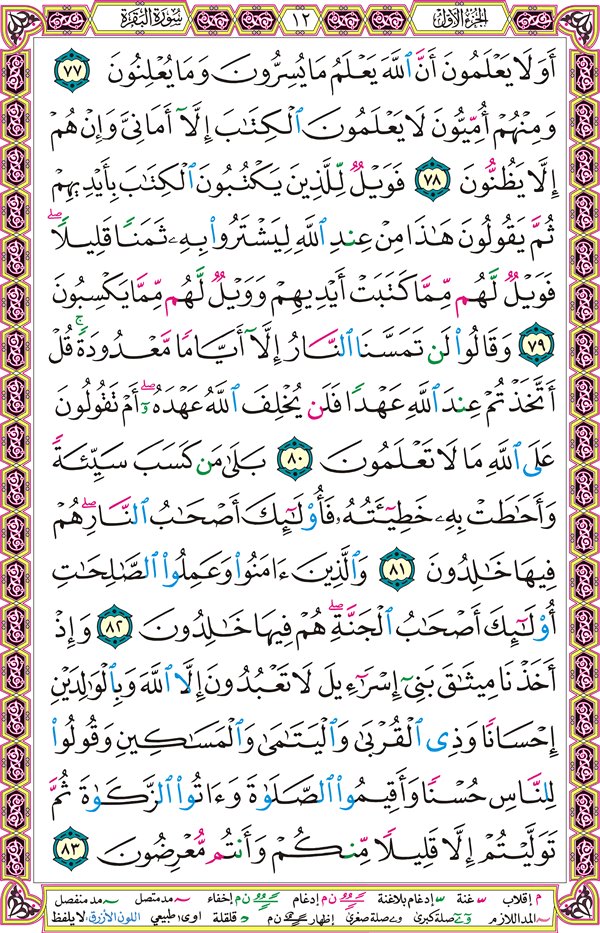 الجزء الأول
١٢
سورة البقرة
أَوَلَا يَعْلَمُونَ أَنَّ ٱللَّهَ يَعْلَمُ مَا يُسِرُّونَ وَمَا يُعْلِنُونَ ٧٧
وَمِنْهُمْ أُمِّيُّونَ لَا يَعْلَمُونَ ٱلْكِتَٰبَ إِلَّآ أَمَانِىَّ وَإِنْ هُمْ
إِلَّا يَظُنُّونَ ٧٨ فَوَيْلٌ لِّلَّذِينَ يَكْتُبُونَ ٱلْكِتَٰبَ بِأَيْدِيهِمْ
ثُمَّ يَقُولُونَ هَٰذَا مِنْ عِندِ ٱللَّهِ لِيَشْتَرُوا۟ بِهِۦ ثَمَنًا قَلِيلًا ۖ
فَوَيْلٌ لَّهُم مِّمَّا كَتَبَتْ أَيْدِيهِمْ وَوَيْلٌ لَّهُم مِّمَّا يَكْسِبُونَ
٧٩ وَقَالُوا۟ لَن تَمَسَّنَا ٱلنَّارُ إِلَّآ أَيَّامًا مَّعْدُودَةً ۚ قُلْ
أَتَّخَذْتُمْ عِندَ ٱللَّهِ عَهْدًا فَلَن يُخْلِفَ ٱللَّهُ عَهْدَهُۥٓ ۖ أَمْ تَقُولُونَ
عَلَى ٱللَّهِ مَا لَا تَعْلَمُونَ ٨٠ بَلَىٰ مَن كَسَبَ سَيِّئَةً
وَأَحَٰطَتْ بِهِۦ خَطِيٓـَٔتُهُۥ فَأُو۟لَٰٓئِكَ أَصْحَٰبُ ٱلنَّارِ ۖ هُمْ
فِيهَا خَٰلِدُونَ ٨١ وَٱلَّذِينَ ءَامَنُوا۟ وَعَمِلُوا۟ ٱلصَّٰلِحَٰتِ
أُو۟لَٰٓئِكَ أَصْحَٰبُ ٱلْجَنَّةِ ۖ هُمْ فِيهَا خَٰلِدُونَ ٨٢ وَإِذْ
أَخَذْنَا مِيثَٰقَ بَنِىٓ إِسْرَٰٓءِيلَ لَا تَعْبُدُونَ إِلَّا ٱللَّهَ وَبِٱلْوَٰلِدَيْنِ
إِحْسَانًا وَذِى ٱلْقُرْبَىٰ وَٱلْيَتَٰمَىٰ وَٱلْمَسَٰكِينِ وَقُولُوا۟
لِلنَّاسِ حُسْنًا وَأَقِيمُوا۟ ٱلصَّلَوٰةَ وَءَاتُوا۟ ٱلزَّكَوٰةَ ثُمَّ
تَوَلَّيْتُمْ إِلَّا قَلِيلًا مِّنكُمْ وَأَنتُم مُّعْرِضُونَ ٨٣
م إقلاب غنة إدغام بلاغنة ن م إدغام ن م إخفاء مد متصل مد منفصل
المد اللازم صلة كبرى صلة صغرى إظهار ن م قلقلة اوى: طبيعي اللون الأزرق: لا يلفظ